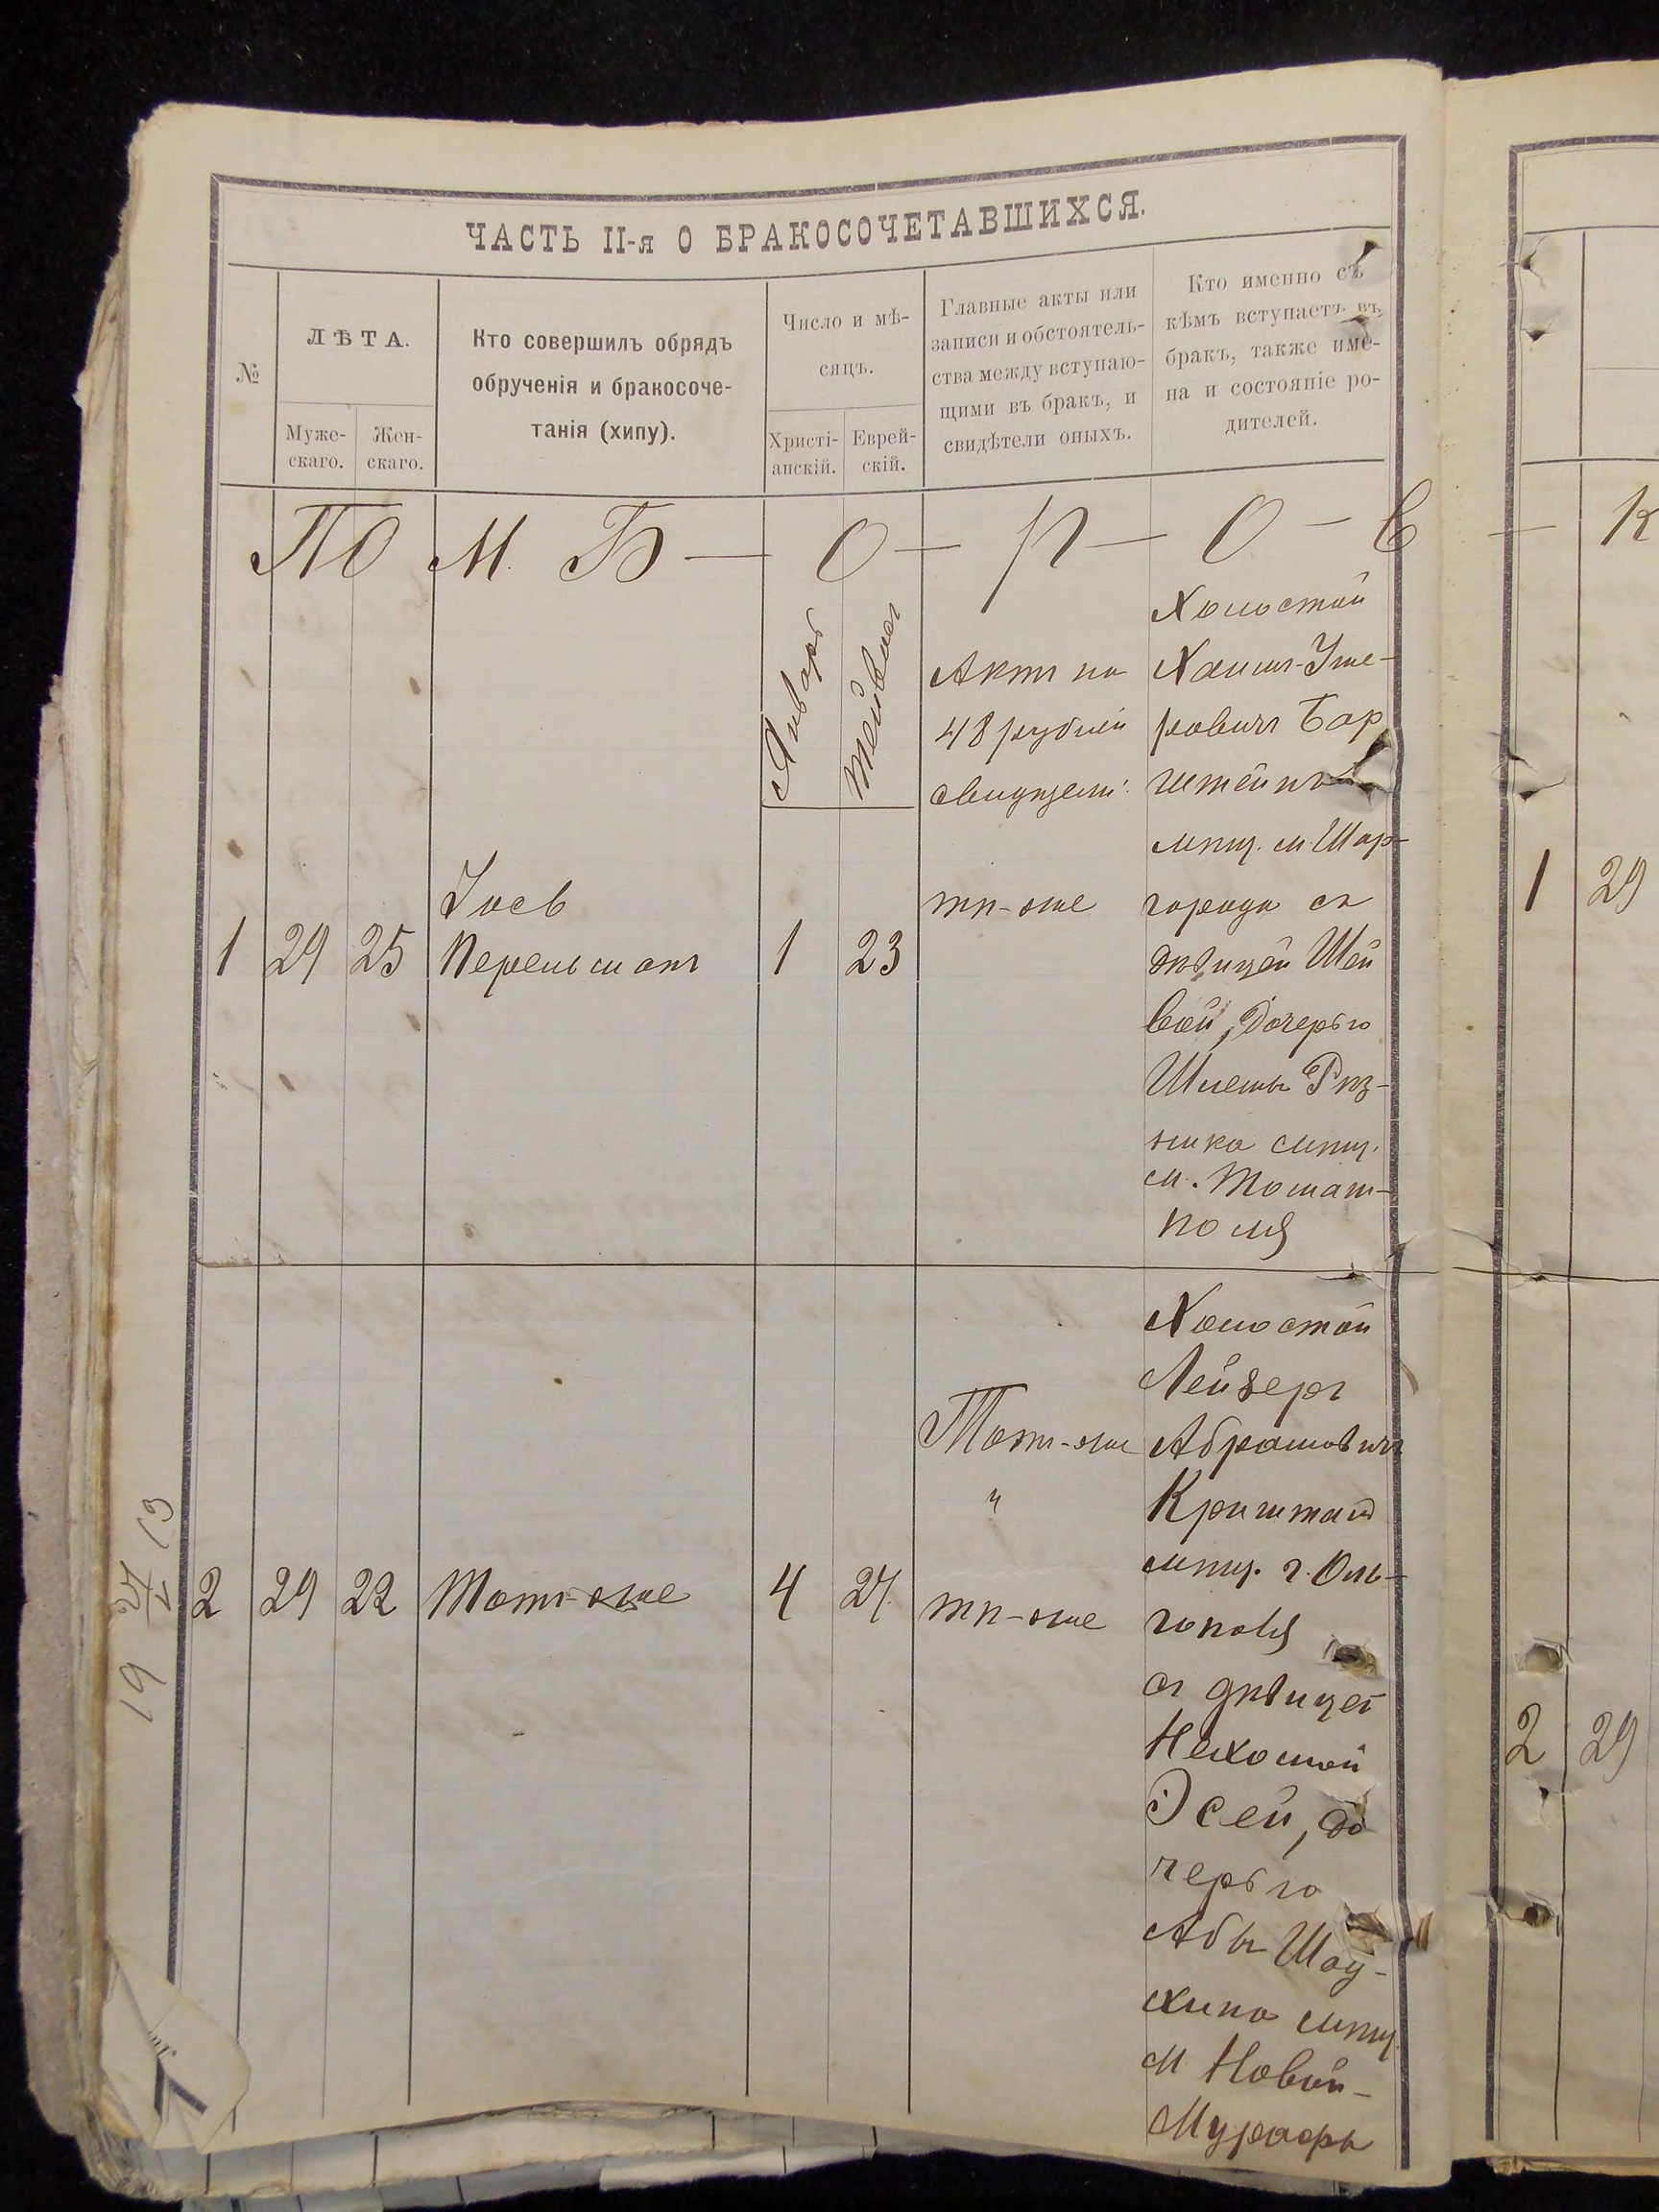 ЧАСТЬ II-я О БРАКОСОЧЕТАВШИХСЯ.
№
ЛѢТА.
Муже-
скаго.
Жен-
скаго.
Кто совершилъ обрядъ
обрученія и бракосоче-
танія (хипу).
Число и мѣ-
сяцъ.
Христі-
анскій.
Еврей-
скій.
Главные акты или
записи и обстоятель-
ства между вступаю-
щими въ бракъ, и
свидѣтели оныхъ.
Кто именно съ
кѣмъ вступаетъ въ
бракъ, также име-
на и состояніе ро-
дителей.
ПО М. Б — О — Р — О — В — К
Январь
Тейвесъ
1
29
25
Іосъ
Перельманъ
1
23
Актъ на
48 рублей
свидѣтели:
тѣ-же
Холостой
Хаимъ-Уше-
ровичъ Бор
штейнъ
мѣщ. м. Шар-
города съ
дѣвицей Шей
вой, дочерью
Шлемы Рѣз-
ника мѣщ.
м. Томаш-
поля
2
29
22
Тотъ-же
4
27
Тотъ-же
"
тѣ-же
Холостой
Лейзеръ
Абрамовичъ
Криштал
мѣщ. г. Оль-
гополя
съ дѣвицей
Нехомой
Эсей, до
черью
Абы Шау-
хина мѣщ.
м. Новой-
Мурафы
19 13
1
29
2
29